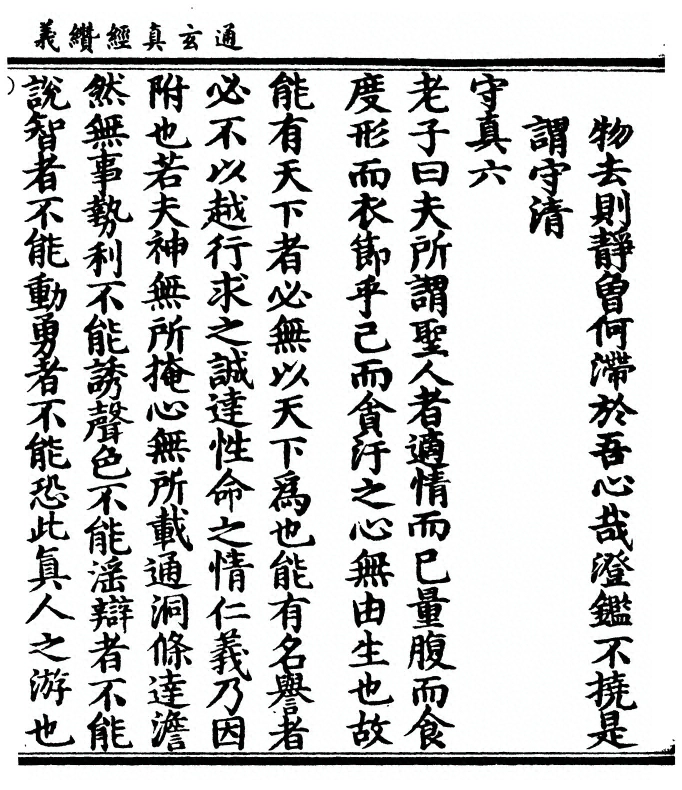 通玄真經纘義
物去則靜曾何滯於吾心哉澄鑑不撓是
謂守清
守真六
老子曰夫所謂聖人者適情而已量腹而食
度形而衣節乎己而貪汙之心無由生也故
能有天下者必無以天下爲也能有名譽者
必不以越行求之誠達性命之情仁義乃因
附也若夫神無所掩心無所載通洞條達澹
然無事勢利不能誘聲色不能滛辯者不能
說智者不能動勇者不能恐此真人之游也